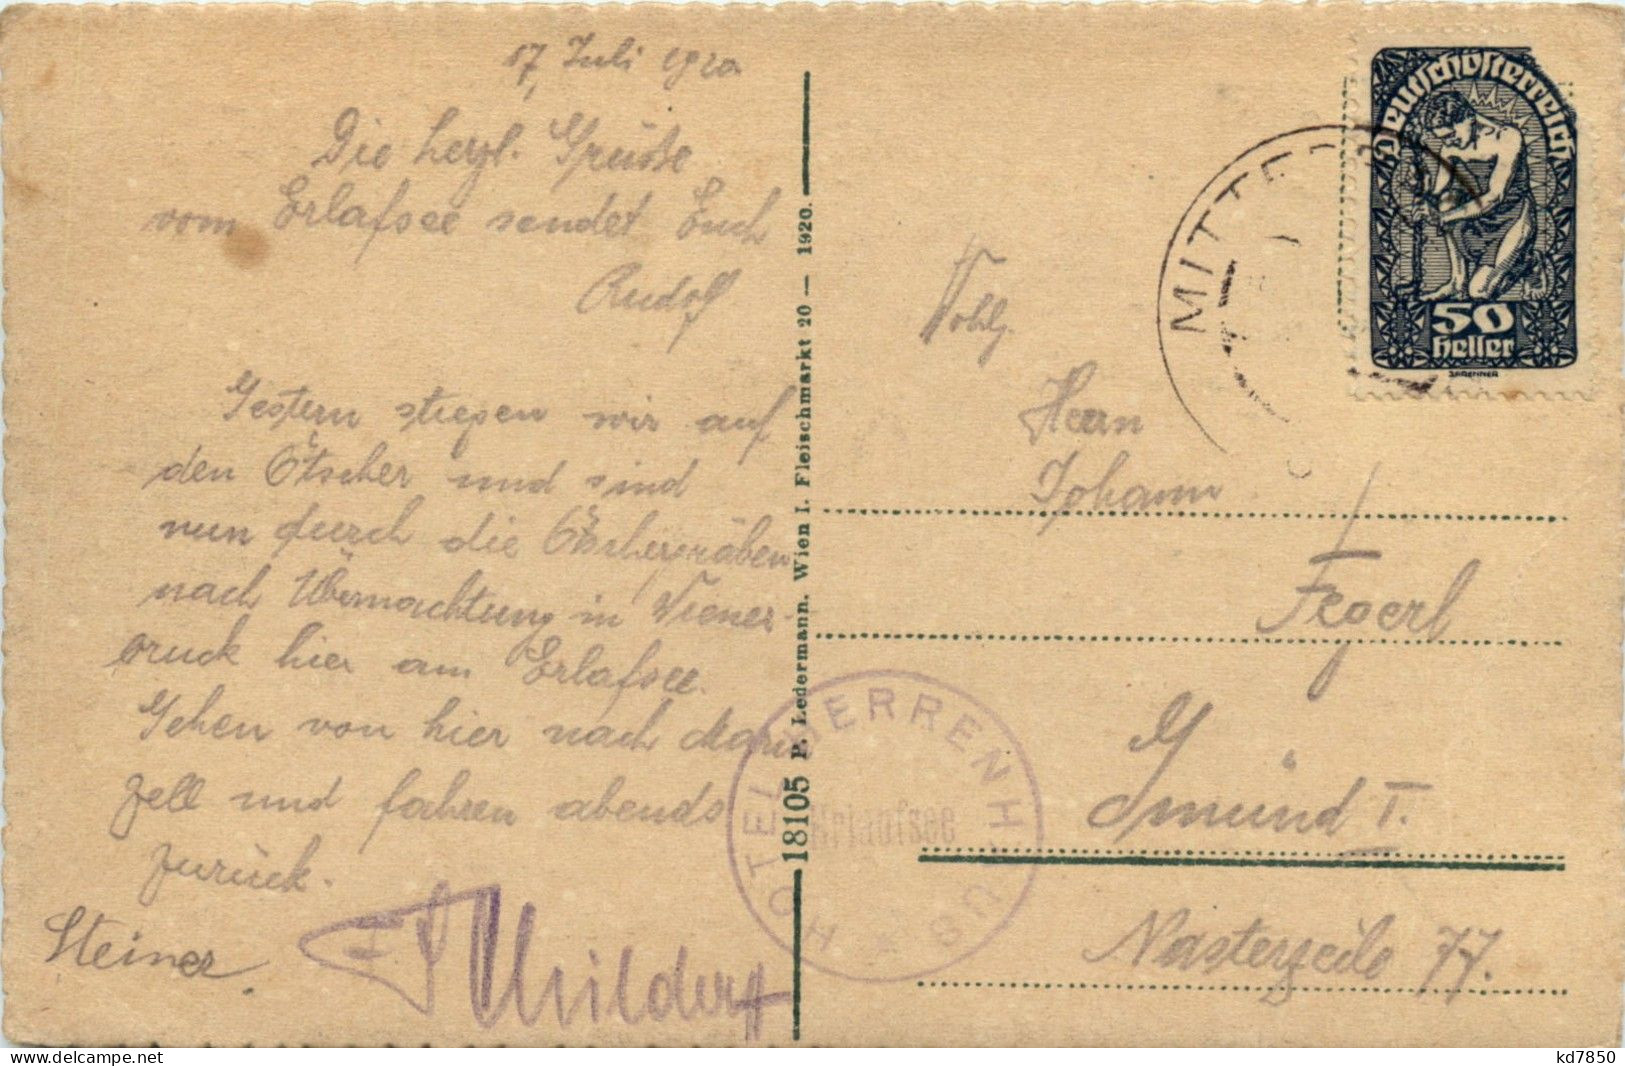 17. Juli 1920
Die herzl. Grüße
vom Erlafsee sendet Euch
Rudolf
Gestern stiegen wir auf
den Ötscher und sind
nun durch die Ötschergräben
nach Übernachtung in Wiener-
bruck hier am Erlafsee.
Gehen von hier nach Maria
Zell und fahren abends
zurück.
Steiner
18105 P. Ledermann. Wien I. Fleischmarkt 20 — 1920.
HOTEL HERRENHAUS
Erlaufsee
MITTE
Deutschösterreich
50
Heller
Wohlg.
Herrn
Johann
Fegerl
Gmünd I.
Nasterzeile 77.
kd7850